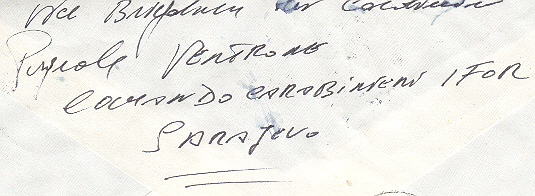 Vice Brigadiere dei Carabinieri
Pasquale VENTRONE
COMANDO CARABINIERI IFOR
SARAJEVO